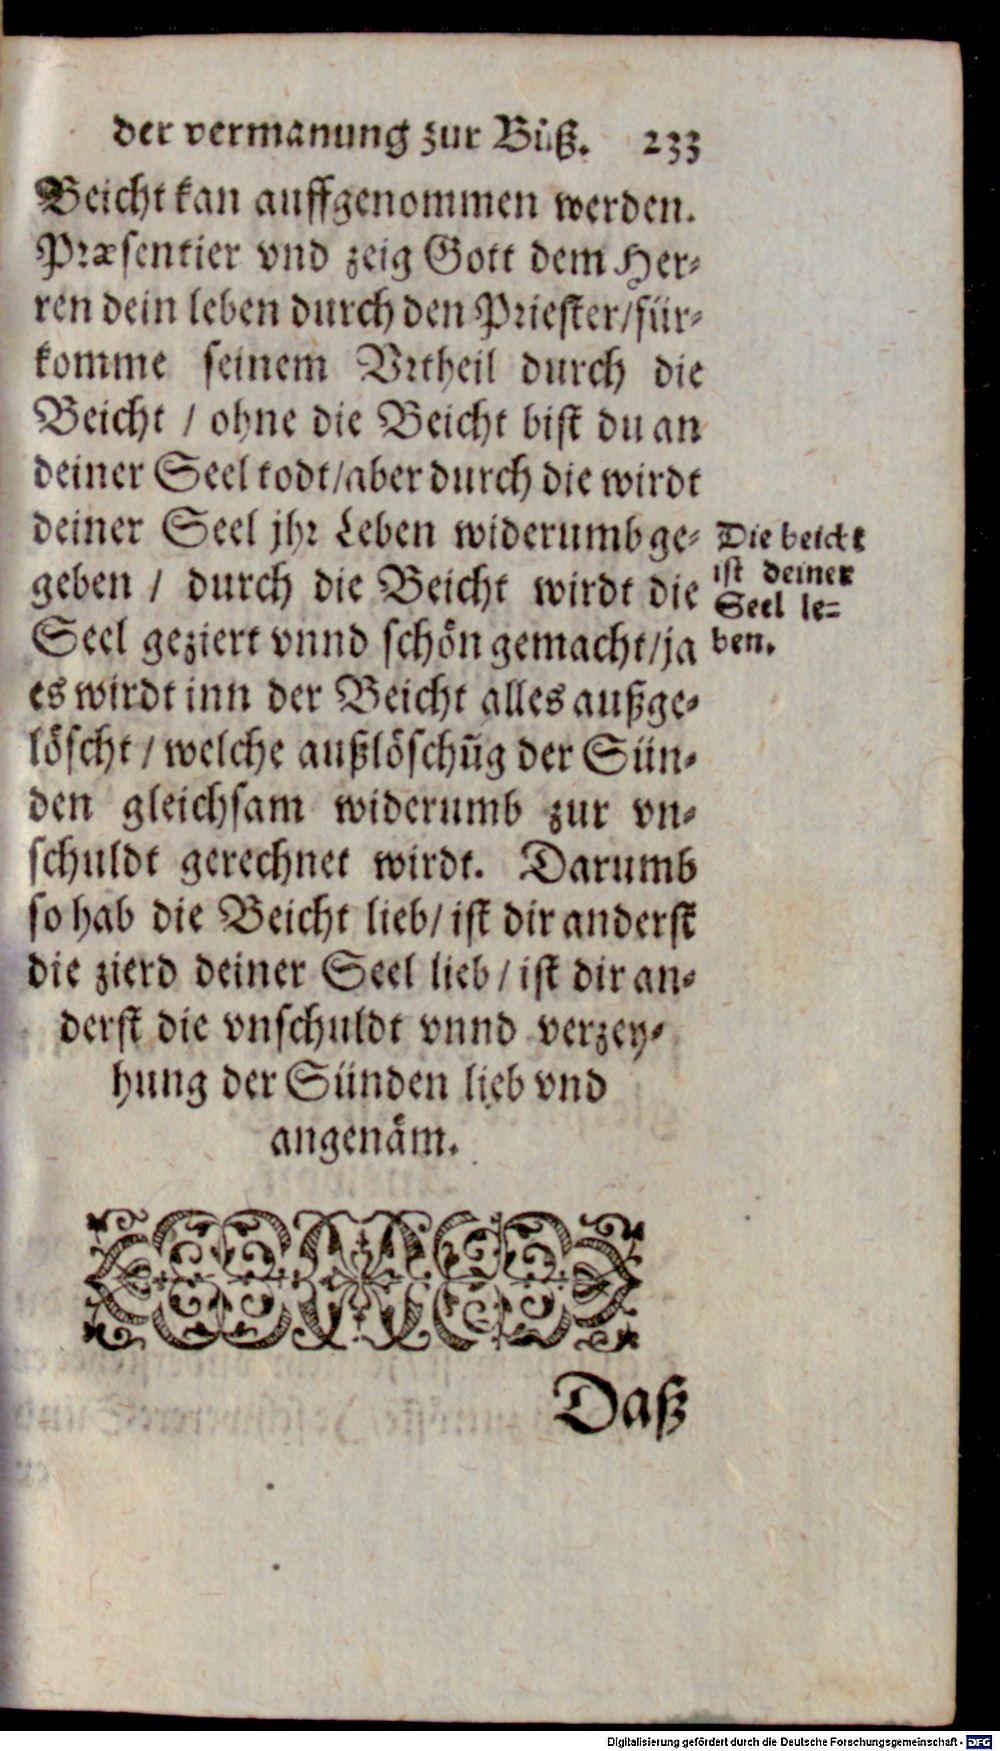 der vermanung zur Bůß. 233
Beicht kan auffgenommen werden.
Præsentier vnd zeig Gott dem Her-
ren dein leben durch den Priester/für-
komme seinem Vrtheil durch die
Beicht / ohne die Beicht bist du an
deiner Seel todt/aber durch die wirdt
deiner Seel jhr Leben widerumb ge-
geben / durch die Beicht wirdt die
Seel geziert vnnd schön gemacht/ja
es wirdt inn der Beicht alles außge-
löscht / welche außlöschũg der Sün-
den gleichsam widerumb zur vn-
schuldt gerechnet wirdt. Darumb
so hab die Beicht lieb/ ist dir anderst
die zierd deiner Seel lieb / ist dir an-
derst die vnschuldt vnnd verzey-
hung der Sünden lieb vnd
angenäm.
Die beicht
ist deiner
Seel le-
ben.
Daß
Digitalisierung gefördert durch die Deutsche Forschungsgemeinschaft - DFG